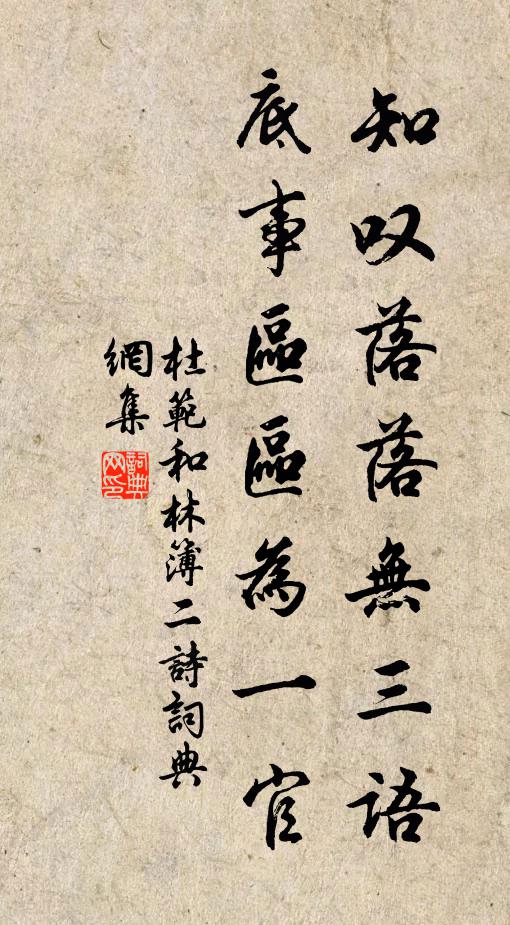 知叹落落無三語
底事區區為一官
杜範和林簿二詩詞典
網集
詞典網印